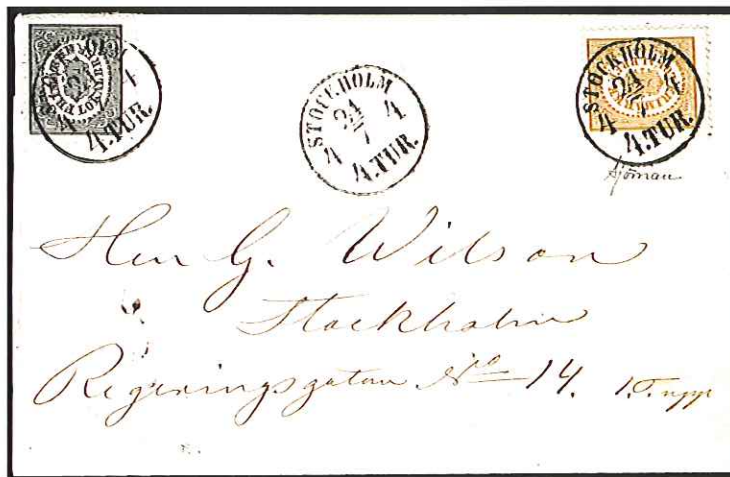 STOCKHOLM
24
7
4 4
4.TUR.
STOCKHOLM
24
7
4 4
4.TUR.
4.TUR.
Sjöman
Herr G. Wilson
Stockholm
Regeringsgatan No 14. 1.Tr. upp